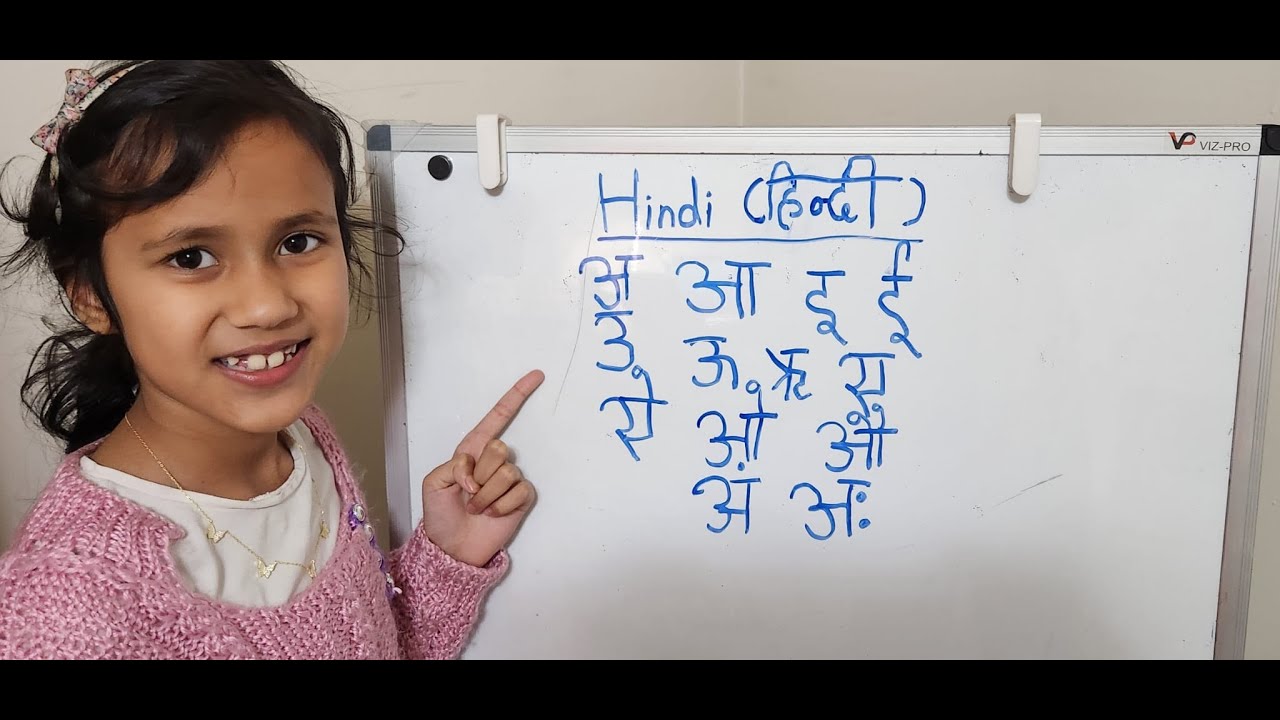 VP VIZ-PRO
Hindi (हिन्दी)
अ आ इ ई
उ ऊ ऋ ए
ऐ ओ औ
अं अः